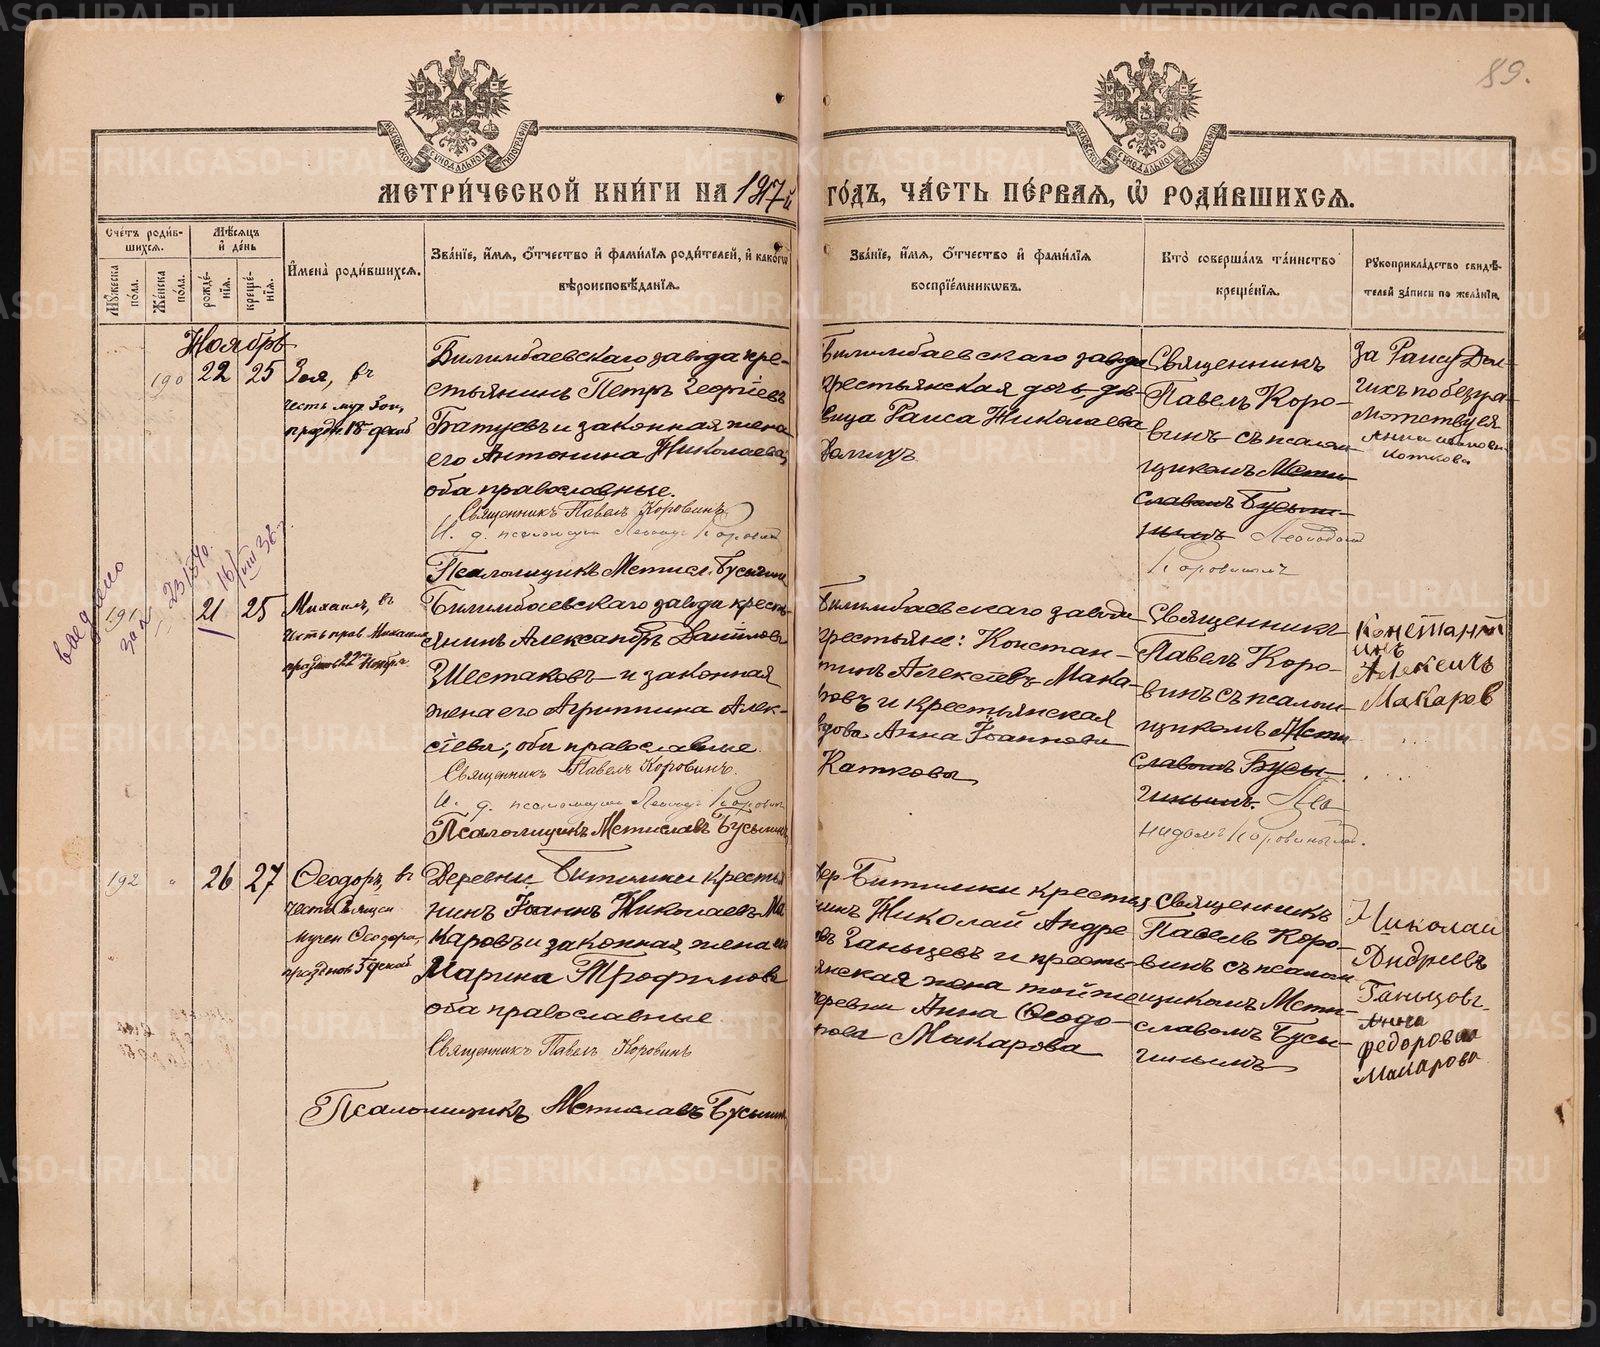 89.
МОСКОВСКОЙ СУНОДАЛЬНОЙ ТИПОГРАФІИ
МОСКОВСКОЙ СУНОДАЛЬНОЙ ТИПОГРАФІИ
МЕТРИ́ЧЕСКОЙ КНИ́ГИ НА 1917й ГО́ДЪ, ЧА́СТЬ ПЕ́РВАЯ, Ѡ РОДИ́ВШИХСЯ.
Сче́тъ роди́в-
шихся.
Мѣ́сяцъ
и де́нь
Му́жеска
по́ла.
Же́нска
по́ла.
рожде́-
нїя.
креще́-
нїя.
Имена̀ роди́вшихся.
Зва́нїе, и́мя, о́тчество и фами́лїя роди́телей, и како́гѡ
вѣроисповѣ́данїя.
Зва́нїе, и́мя, о́тчество и фами́лїя
воспрїе́мникѡвъ.
Кто̀ соверша́лъ та́инство
креще́нїя.
Рукоприкла́дство свидѣ́-
телей за́писи по жела́нїю.
Ноябрь
190 22 25
Зоя, въ
честь муч Зои,
праздн 18 декаб
Билимбаевскаго завода кре-
стьянинъ Петръ Георгіевъ
Батуевъ и законная жена
его Антонина Николаева,
оба православные.
Священникъ Павелъ Коровинъ
И. д. псаломщик Леонид Коровин
Псаломщикъ Мстисл. Бусыгин
Билимбаевскаго завода
крестьянская дочь дѣ-
вица Раиса Николаева
Долгихъ
Священникъ
Павелъ Коро-
винъ съ псалом-
щикомъ Мсти-
славомъ Бусы-
гинымъ Леонидом
Коровинымъ
За Раису Дол-
гихъ по безгра-
мотству ея
Анна Ивановна
Каткова
выдано
23/5 40.
16/VIII 38 г.
191 21 25
Михаилъ, въ
честь прав Михаила
праздн 22 Ноября
Билимбаевскаго завода кресть-
янинъ Александръ Даниловъ
Шестаковъ и законная
жена его Агриппина Алек-
сѣева; оба православные
Священникъ Павелъ Коровинъ.
И. д. псаломщик Леонид Коровин
Псаломщикъ Мстиславъ Бусыгинъ
Билимбаевскаго завода
крестьяне: Констан-
тинъ Алексѣевъ Мака-
ровъ и крестьянская
вдова Анна Іоаннова
Каткова
Священникъ
Павелъ Коро-
винъ съ псалом-
щикомъ Мсти
славомъ Бусы-
гинымъ. Лео
нидомъ Коровинымъ.
Констант
инъ
Алексеичъ
Макаров
192 " 26 27
Ѳеодоръ, въ
честь Священ
мучен Ѳеодора,
празднов 3 декаб
Деревни Битимки крестья
нинъ Іоаннъ Николаевъ Ма
каровъ и законная жена его
Марина Трофимова
оба православные
Священникъ Павелъ Коровинъ
Псаломщикъ Мстиславъ Бусыгин
дер Битимки крестья
нинъ Николай Андре
евъ Ганьцевъ и кресть-
янская жена той же
деревни Анна Ѳеодо-
рова Макарова
Священникъ
Павелъ Коро-
винъ съ псалом
щикомъ Мсти-
славомъ Бусы-
гинымъ
Николаи
Андриевъ
Ганьцовъ
Анна
федоровна
Макарова